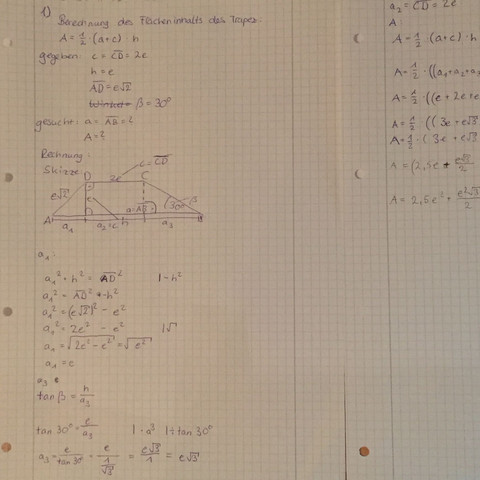 1) Berechnung des Flächeninhalts des Trapez:
A = 1/2 · (a+c) · h
gegeben: c = CD = 2e
h = e
AD = e√2
β = 30°
gesucht: a = AB = ?
A = ?
Rechnung:
Skizze:
c = CD
D 2e C
e√2 e
a = AB 30° β
A a₁ a₂=c h a₃ B
a₁:
a₁² + h² = AD² | - h²
a₁² = AD² - h²
a₁² = (e√2)² - e²
a₁² = 2e² - e² | √
a₁ = √(2e² - e²) = √(e²)
a₁ = e
a₃
tan β = h/a₃
tan 30° = e/a₃ | · a³ | : tan 30°
a₃ = e/tan 30° = e/(1/√3) = e√3/1 = e√3
a₂ = CD = 2e
A:
A = 1/2 · (a+c) · h
A = 1/2 · ((a₁+a₂+a₃
A = 1/2 · ((e + 2e + e
A = 1/2 · ((3e + e√3
A = 1/2 · (3e + e√3
A = (2,5e + e√3/2
A = 2,5e² + e²√3/2